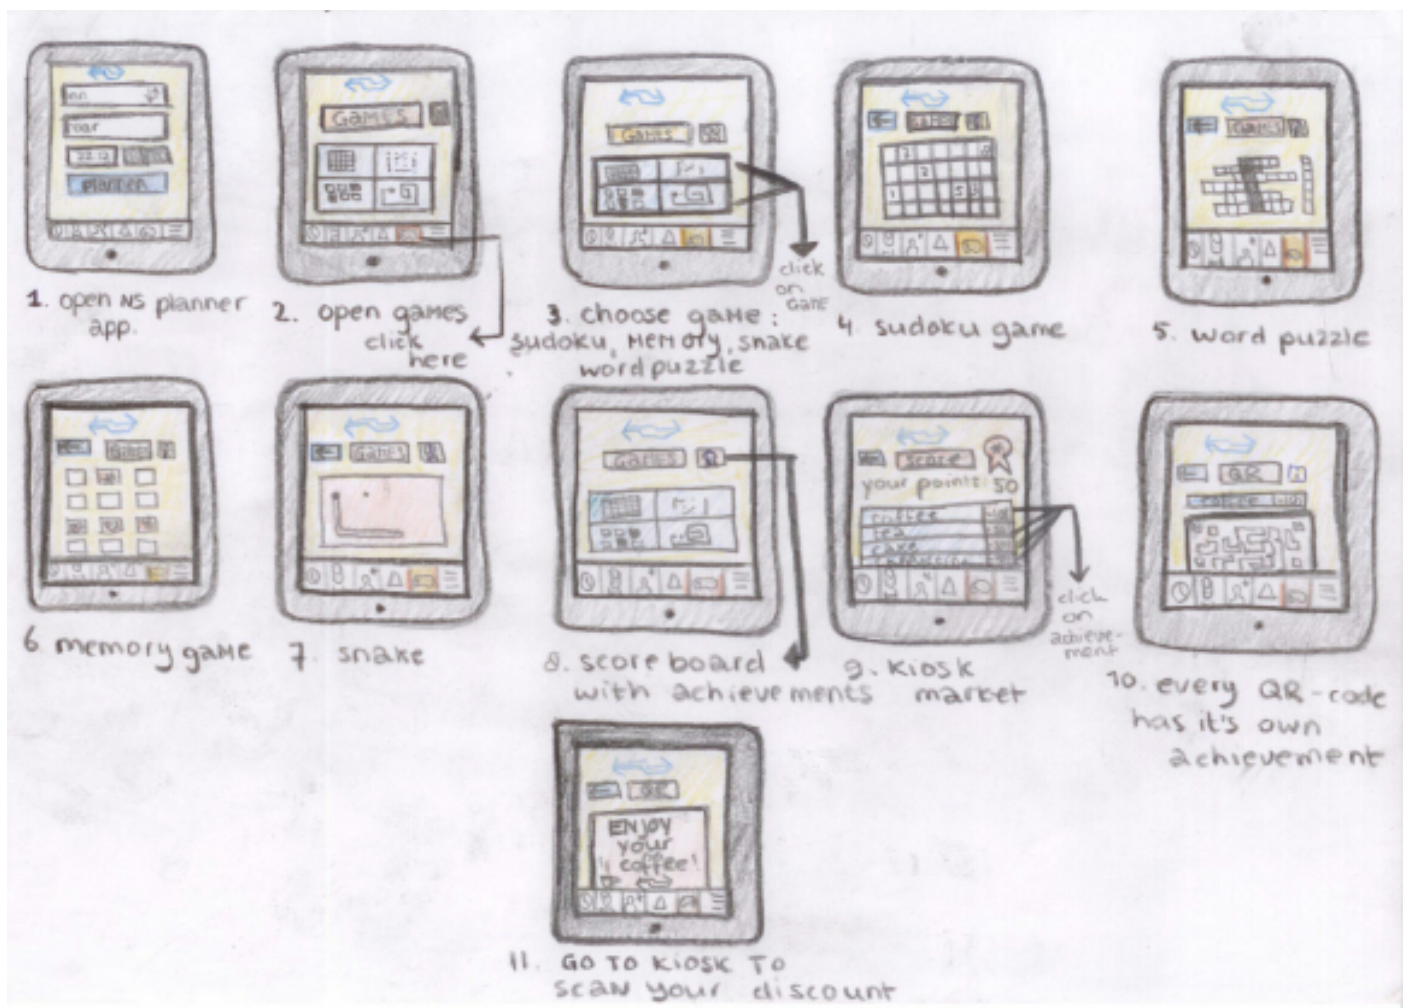 naar
planner
1. open NS planner
app.
GAMES
2. open games
click
here
GAMES
click
on
GAME
3. choose game:
sudoku, memory, snake
wordpuzzle
GAMES
7
2
1 5 3
4. sudoku game
GAMES
5. word puzzle
Games
6 memory game
GAMES
7. snake
GAMES
8. score board
with achievements
score
your points: 50
coffee
tea
cake
click
on
achieve-
ment
9. kiosk
market
QR
coffee
10. every QR-code
has it's own
achievement
QR
ENJOY
your
coffee!
11. GO TO KIOSK TO
scan your discount